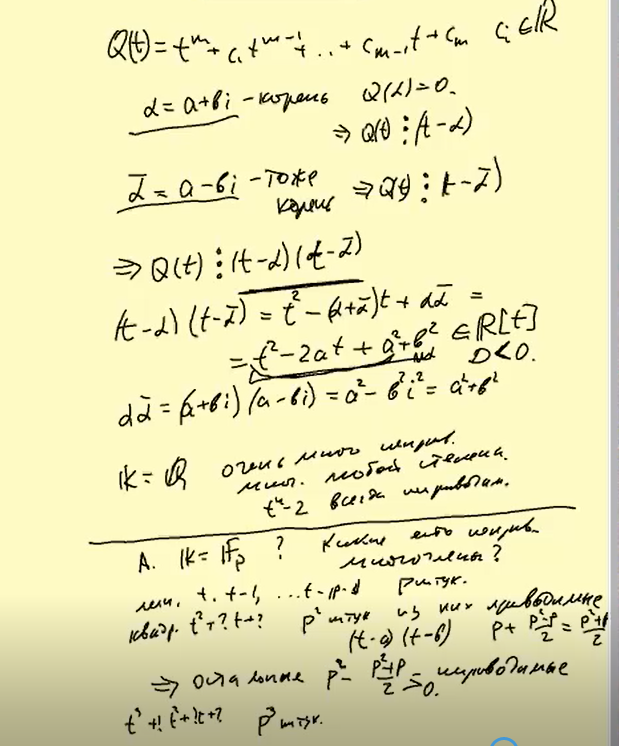 Q(t) = t^m + c₁ t^{m-1} + ... + c_{m-1} t + c_m   c_i ∈ ℝ
α = a+bi - корень   Q(α) = 0.
⇒ Q(t) ⋮ (t-α)
ᾱ = a-bi - тоже корень ⇒ Q(t) ⋮ (t-ᾱ)
⇒ Q(t) ⋮ (t-α)(t-ᾱ)
(t-α)(t-ᾱ) = t² - (α+ᾱ)t + αᾱ =
= t² - 2at + a²+b² ∈ ℝ[t]
D<0.
αᾱ = (a+bi)(a-bi) = a² - b²i² = a²+b²
𝕂 = ℚ очень много неприв.
мног. любой степени.
tⁿ-2 всегда неприводим.
A. 𝕂 = 𝔽_p ? Какие есть неприв.
многочлены?
лин. t, t-1, ... t-(p-1)   p штук.
квадр. t²+?t+?   p² штук из них приводимые
(t-a)(t-b)   p + (p²-p)/2 = (p²+p)/2
⇒ остальные p² - (p²+p)/2 > 0. неприводимые
t³+?t²+?t+?   p³ штук.